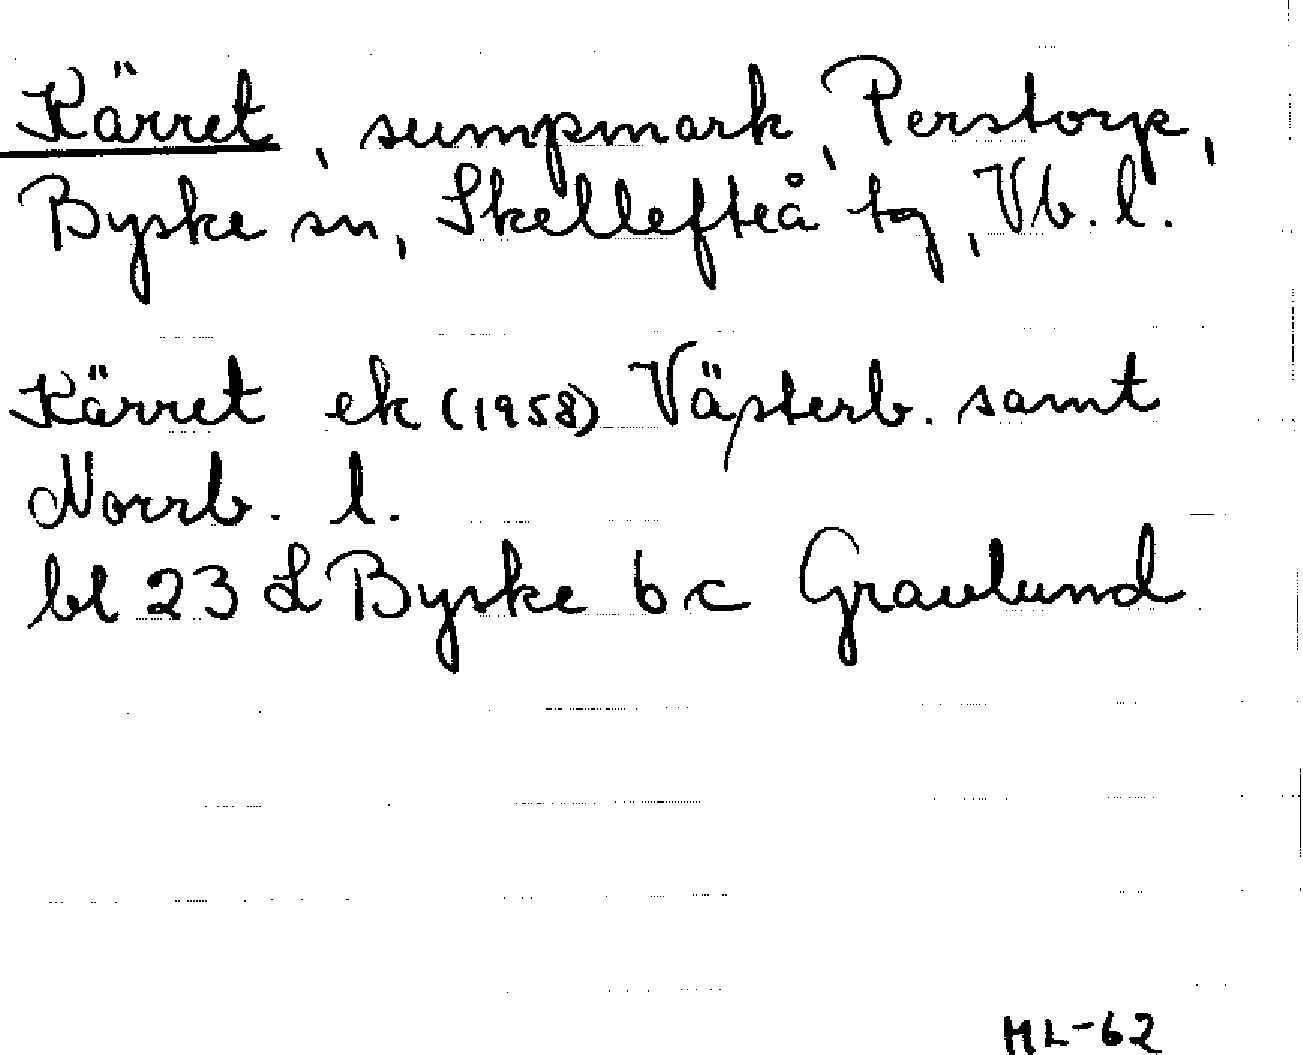 Kärret, sumpmark, Perstorp,
Byske sn, Skellefteå tg, Vb. l.
Kärret ek (1958) Västerb. samt
Norrb. l.
bl 23 L Byske 6 c Gravlund
ML-62